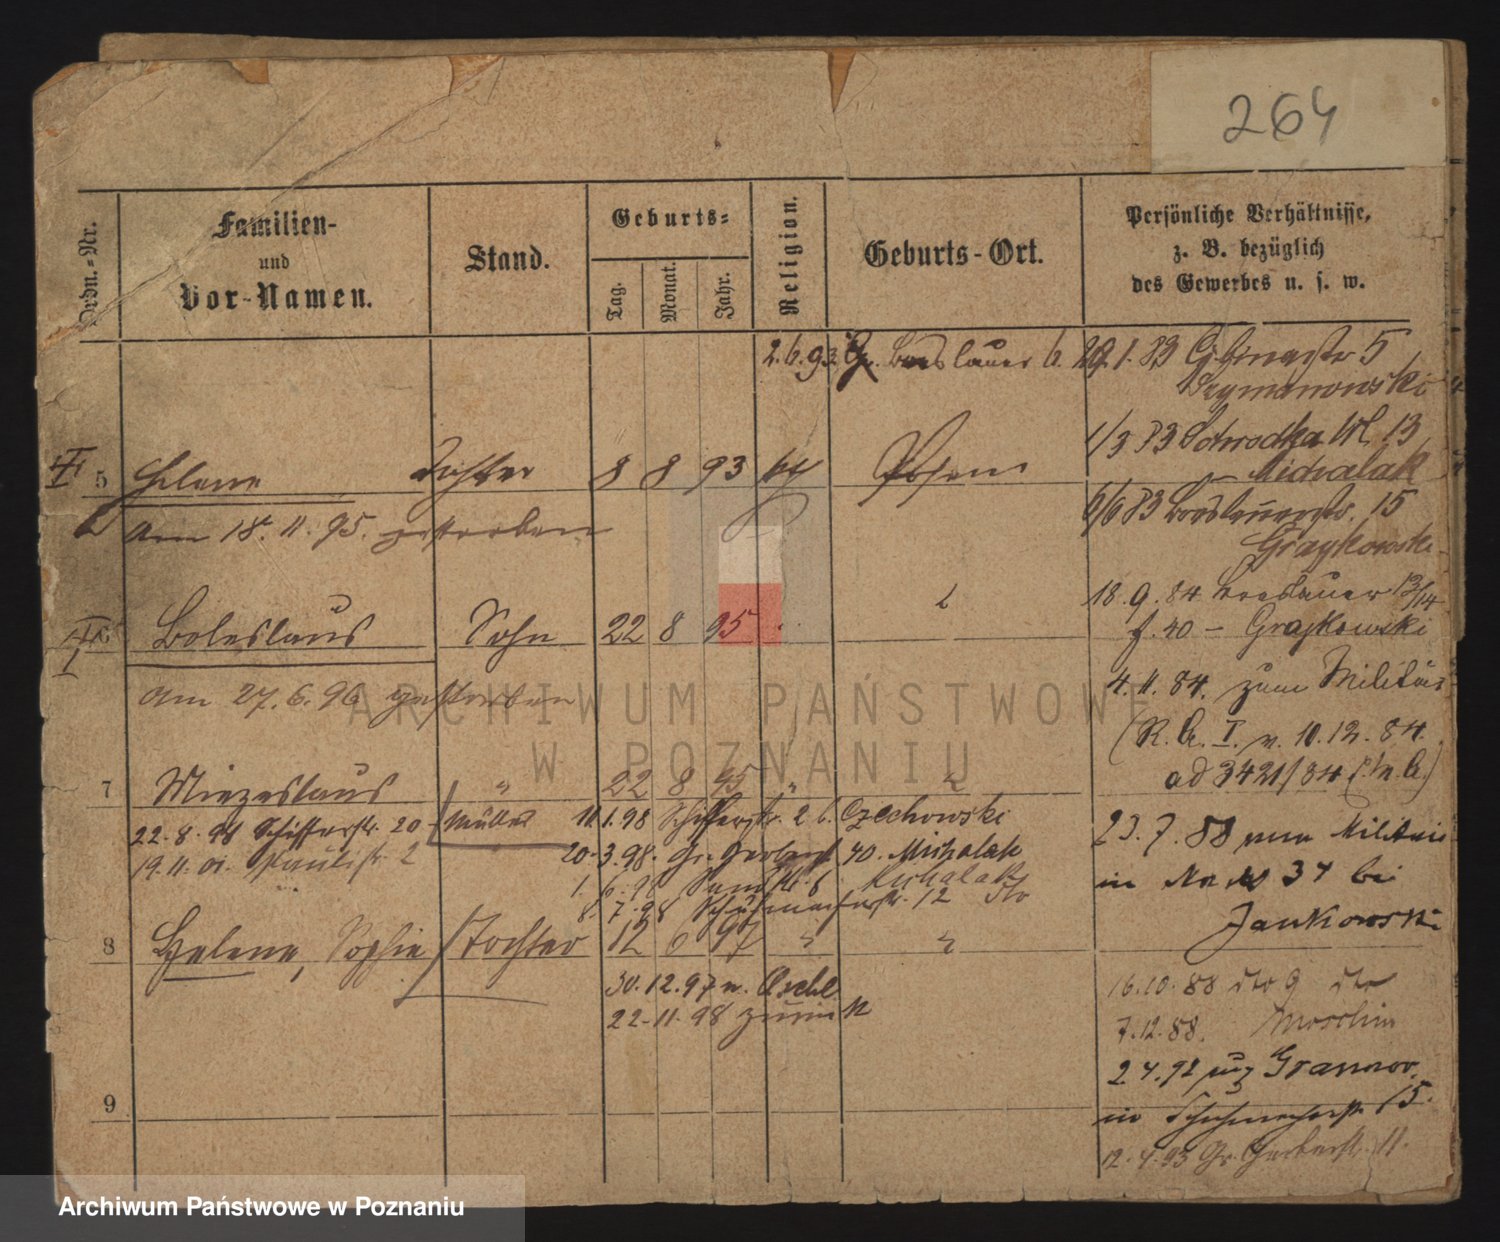 264
Ordn.-Nr.
Familien-
und
Vor-Namen.
Stand.
Geburts-
Tag.
Monat.
Jahr.
Religion.
Geburts-Ort.
Persönliche Verhältnisse,
z. B. bezüglich
des Gewerbes u. s. w.
2.6.93 Gr. Breslauer 6. 29.1.83 5
Szymanowski
1/3 83 13
Michalak
5 Helene Tochter 8 8 93 Posen
6/6 83 Breslauerstr. 15
am 18. 11. 95. gestorben
Grajkowski
18.9.84 Breslauer 13/14
Boleslaus Sohn 22 8 95
f. 40 – Grajkowski
am 27.6.96 gestorben
4.11.84. zum Militär
(R. A. I. v. 10.12.84
ad 3421/84
7 Miezeslaus " 22 8 95 "
22.8.98 Schifferstr. 20 Müller 11.1.98 Schifferstr. 2 b. Czechowski
23.7.88 vom Militär
19.11.01. Paulistr. 2 20.3.98. Gr. Gerberstr. 40. Michalak
in 37 bei
1.6.98 Sandstr. 6 Michalak
8.7.98 Schuhmacherstr. 12 dto
Jankowski
8 Helene, Sophie Tochter 12 6 97
30.12.97 n.
16.10.88 dto 9 dto
22.11.98 zurück
7.12.88.
2.4.92
in Schuhmacherstr. 15.
9
12.4.93 Gr. Gerberstr. 11.
ARCHIWUM PAŃSTWOWE
W POZNANIU
Archiwum Państwowe w Poznaniu